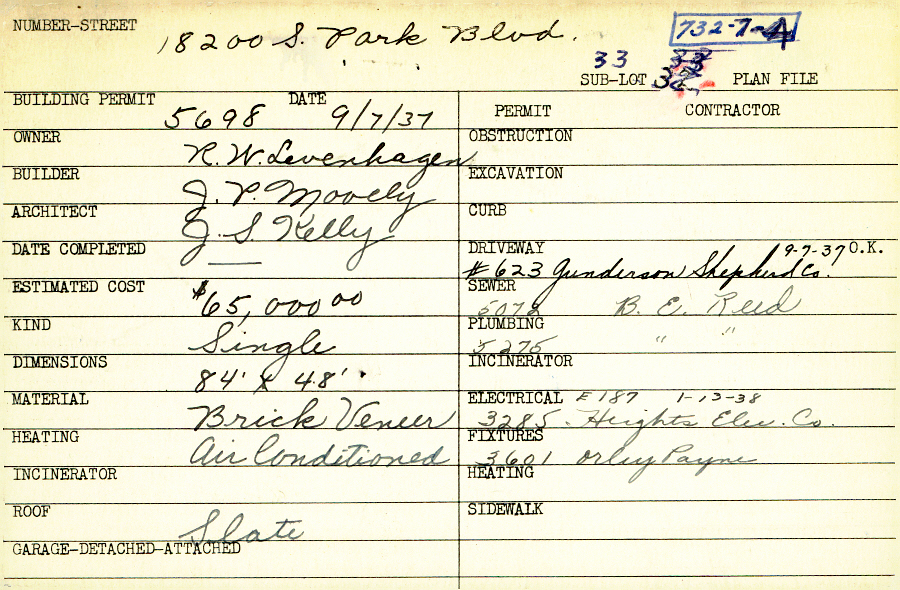 NUMBER-STREET 18200 S. Park Blvd. 732-7-4
33
SUB-LOT PLAN FILE
BUILDING PERMIT 5698 DATE 9/7/37
PERMIT CONTRACTOR
OWNER R. W. Levenhagen
OBSTRUCTION
BUILDER J. P. Moovely
EXCAVATION
ARCHITECT J. S. Kelly
CURB
DATE COMPLETED —
DRIVEWAY 9-7-37 O.K.
#623 Gunderson Shepherd Co.
ESTIMATED COST $65,000 00
SEWER 5072 B. E. Reed
KIND Single
PLUMBING 5275 " "
DIMENSIONS 84' x 48'
INCINERATOR
MATERIAL Brick Veneer
ELECTRICAL E187 1-13-38
3285 Heights Elec. Co.
HEATING Air Conditioned
FIXTURES
3601 Orley Payne
INCINERATOR
HEATING
ROOF Slate
SIDEWALK
GARAGE-DETACHED-ATTACHED